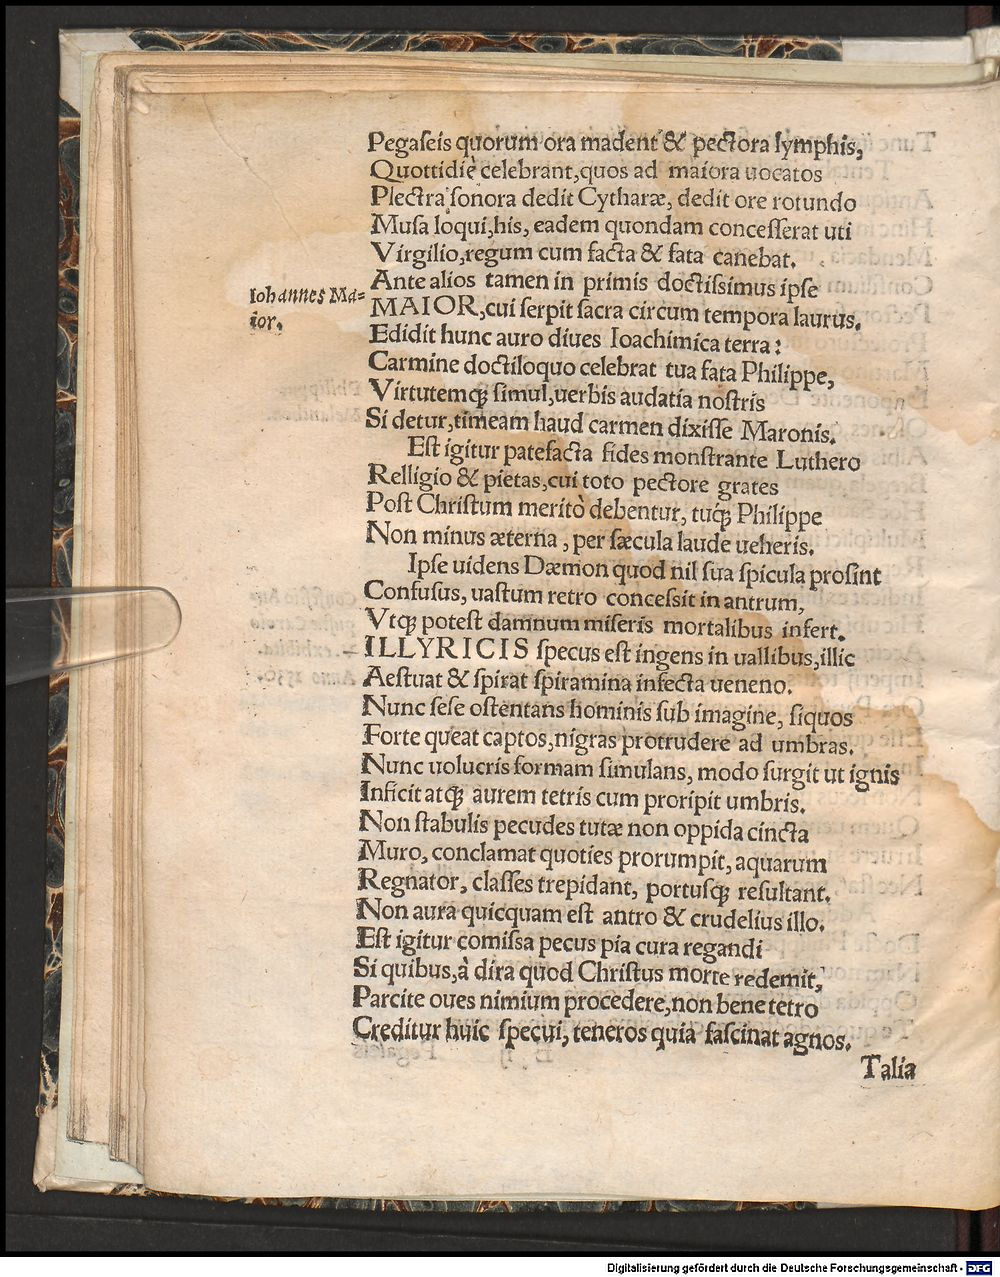 Pegaſeis quorum ora madent & pectora lymphis,
Quottidiè celebrant, quos ad maiora uocatos
Plectra ſonora dedit Cytharæ, dedit ore rotundo
Muſa loqui, his, eadem quondam conceſſerat uti
Virgilio, regum cum facta & fata canebat.
Ante alios tamen in primis doctiſsimus ipſe
Iohannes Ma=
ior.
MAIOR, cui ſerpit ſacra circum tempora laurus.
Edidit hunc auro diues Ioachimica terra:
Carmine doctiloquo celebrat tua fata Philippe,
Virtutemq́; ſimul, uerbis audatia noſtris
Si detur, timeam haud carmen dixiſſe Maronis.
Eſt igitur patefacta fides monſtrante Luthero
Relligio & pietas, cui toto pectore grates
Poſt Chriſtum meritò debentur, tuq́; Philippe
Non minus æterna, per ſæcula laude ueheris.
Ipſe uidens Dæmon quod nil ſua ſpicula proſint
Confuſus, uaſtum retro conceſsit in antrum,
Vtq́; poteſt damnum miſeris mortalibus infert.
ILLYRICIS ſpecus eſt ingens in uallibus, illic
Aeſtuat & ſpirat ſpiramina infecta ueneno.
Nunc ſeſe oſtentans hominis ſub imagine, ſiquos
Forte queat captos, nigras protrudere ad umbras.
Nunc uolucris formam ſimulans, modo ſurgit ut ignis
Inficit atq́; aurem tetris cum proripit umbris.
Non ſtabulis pecudes tutæ non oppida cincta
Muro, conclamat quoties prorumpit, aquarum
Regnator, claſſes trepidant, portusq́; reſultant.
Non aura quicquam eſt antro & crudelius illo.
Eſt igitur comiſsa pecus pia cura regandi
Si quibus, à dira quod Chriſtus morte redemit,
Parcite oues nimium procedere, non bene tetro
Creditur huic ſpecui, teneros quia faſcinat agnos.
Talia
Digitalisierung gefördert durch die Deutsche Forschungsgemeinschaft - DFG